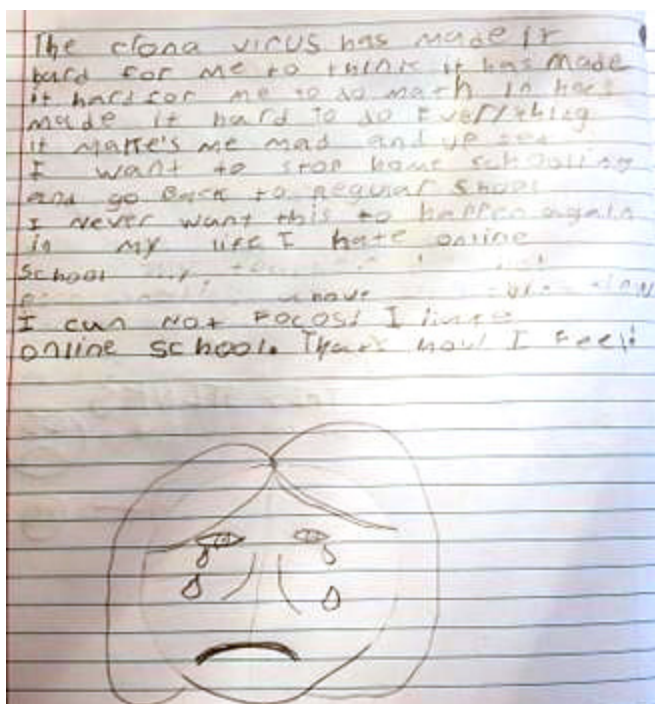 The clona virus has made it
hard for me to think it has made
it hard for me to do math it has
made it hard to do Everything
it make's me mad and up set
I want to stop home schooling
and go Back to regular shool
I never want this to happen again
in my life I hate online
School my
have
I can not Focos! I hate
online school. That's how I Feel!